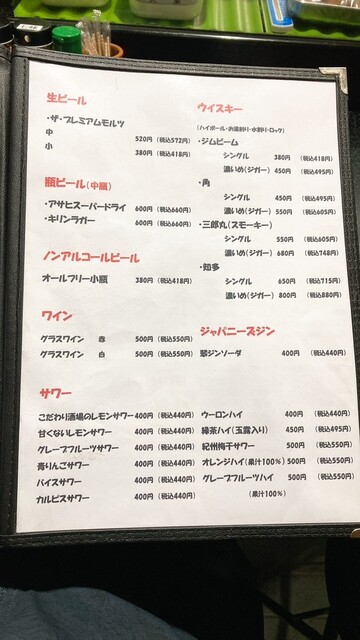 生ビール
・ザ・プレミアムモルツ
中 520円 (税込572円)
小 380円 (税込418円)
瓶ビール(中瓶)
・アサヒスーパードライ 600円 (税込660円)
・キリンラガー 600円 (税込660円)
ノンアルコールビール
オールフリー小瓶 380円 (税込418円)
ワイン
グラスワン 赤 500円 (税込550円)
グラスワイン 白 500円 (税込550円)
ウイスキー
(ハイボール・お湯割り・水割り・ロック)
・ジムビーム
シングル 380円 (税込418円)
濃いめ(ジガー) 450円 (税込495円)
・角
シングル 450円 (税込495円)
濃いめ(ジガー) 550円 (税込605円)
・三郎丸(スモーキー)
シングル 550円 (税込605円)
濃いめ(ジガー) 680円 (税込748円)
・知多
シングル 650円 (税込715円)
濃いめ(ジガー) 800円 (税込880円)
ジャパニーズジン
翠ジンソーダ 400円 (税込440円)
サワー
こだわり酒場のレモンサワー 400円 (税込440円)
甘くないレモンサワー 400円 (税込440円)
グレープフルーツサワー 400円 (税込440円)
青りんごサワー 400円 (税込440円)
バイスサワー 400円 (税込440円)
カルピスサワー 400円 (税込440円)
ウーロンハイ 400円 (税込440円)
緑茶ハイ(玉露入り) 450円 (税込495円)
紀州梅干サワー 500円 (税込550円)
オレンジハイ(果汁100%) 500円 (税込550円)
グレープフルーツハイ 500円 (税込550円)
(果汁100%)